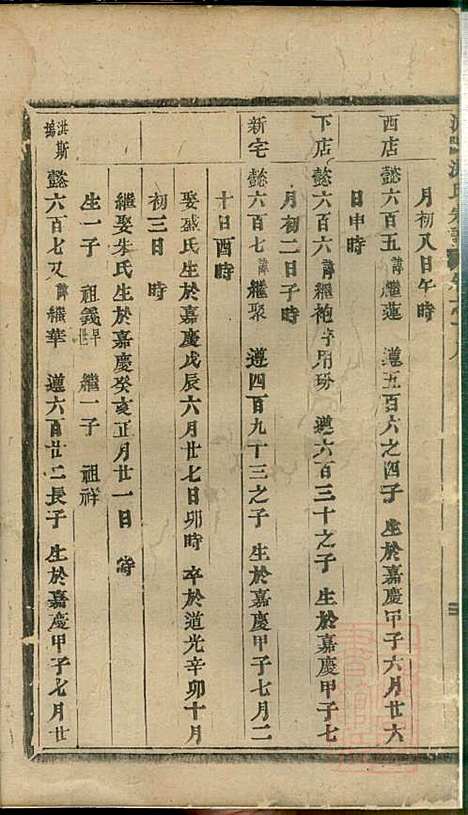 月初八日午時
西店 懿六百五 諱繼蓮 遵五百六之四子 生於嘉慶甲子六月廿六
日申時
下店 懿六百六 諱繼袍 字用功 遵六百三十之子 生於嘉慶甲子七
月初二日子時
新宅 懿六百七 諱繼聚 遵四百九十三之子 生於嘉慶甲子七月二
十日酉時
娶盛氏生於嘉慶戊辰六月廿七日卯時 卒於道光辛卯十月
初三日 時
繼娶朱氏生於嘉慶癸亥正月廿一日 時
生一子 祖義早世 繼一子 祖祥
洪斯塢 懿六百七又 諱繼華 遵六百廿二長子 生於嘉慶甲子七月廿